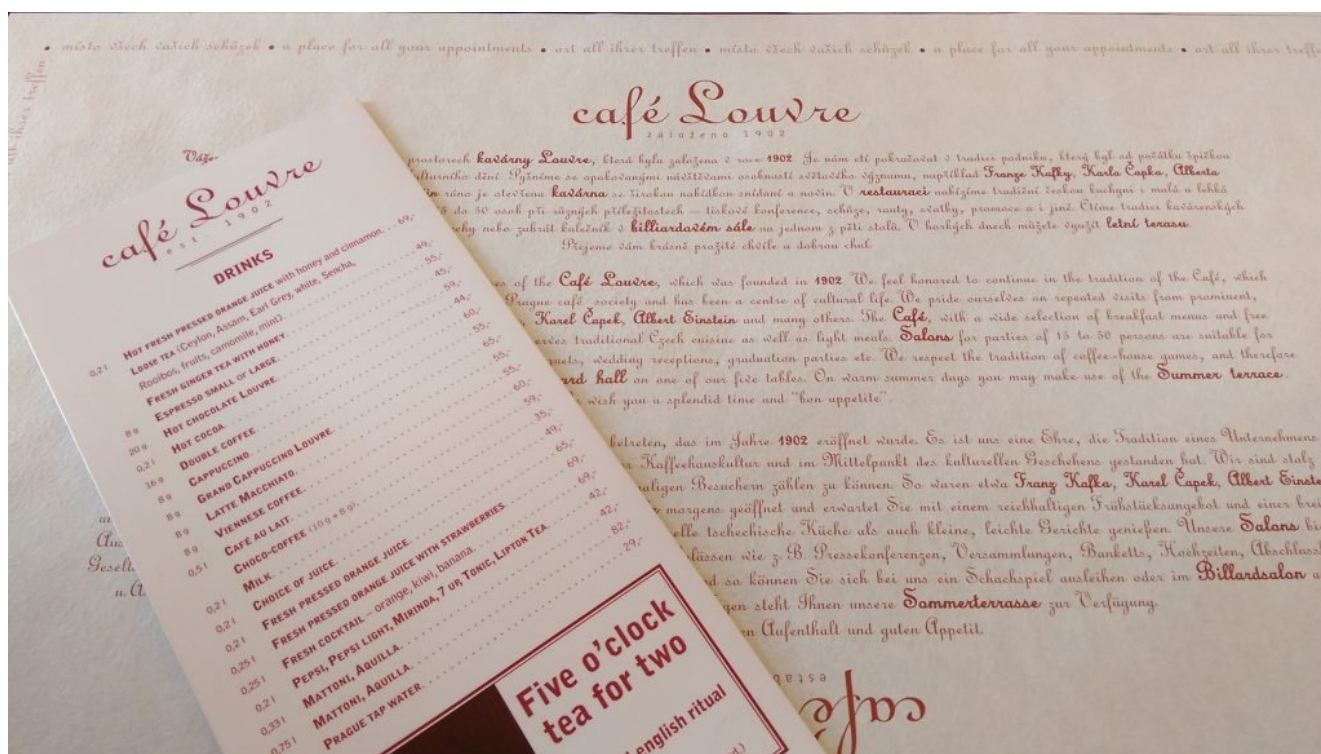 • místo všech vašich schůzek • a place for all your appointments • ort all ihrer treffen • místo všech vašich schůzek • a place for all your appointments • ort all ihrer
ihrer treffen
café Louvre
založeno 1902
prostorech kavárny Louvre, která byla založena v roce 1902. Je nám ctí pokračovat v tradici podniku, který byl od počátku špičkou
kulturního dění. Pyšníme se opakovanými návštěvami osobností světového významu, například Franze Kafky, Karla Čapka, Alberta
ráno je otevřena kavárna se širokou nabídkou snídaní a novin. V restauraci nabízíme tradiční českou kuchyni i malá a lehká
do 50 osob při různých příležitostech – tiskové konference, schůze, rauty, svatby, promoce a i jiné. Ctíme tradici kavárenských
nebo zahrát kulečník v billiardovém sále na jednom z pěti stolů. V horkých dnech můžete využít letní terasu.
Přejeme vám krásně prožité chvíle a dobrou chuť.
of the Café Louvre, which was founded in 1902. We feel honored to continue in the tradition of the Café, which
Prague café society and has been a centre of cultural life. We pride ourselves on repeated visits from prominent,
Karel Čapek, Albert Einstein and many others. The Café, with a wide selection of breakfast menus and free
serves traditional Czech cuisine as well as light meals. Salons for parties of 15 to 50 persons are suitable for
wedding receptions, graduation parties etc. We respect the tradition of coffee-house games, and therefore
hall on one of our five tables. On warm summer days you may make use of the Summer terrace.
wish you a splendid time and "bon appetite".
betreten, das im Jahre 1902 eröffnet wurde. Es ist uns eine Ehre, die Tradition eines Unternehmens
Kaffeehauskultur und im Mittelpunkt des kulturellen Geschehens gestanden hat. Wir sind stolz
Besuchern zählen zu können. So waren etwa Franz Kafka, Karel Čapek, Albert
morgens geöffnet und erwartet Sie mit einem reichhaltigen Frühstücksangebot und einer
tschechische Küche als auch kleine, leichte Gerichte genießen. Unsere Salons
wie z. B. Pressekonferenzen, Versammlungen, Banketts, Hochzeiten,
so können Sie sich bei uns ein Schachspiel ausleihen oder im Billardsalon
steht Ihnen unsere Sommerterrasse zur Verfügung.
Aufenthalt und guten Appetit.
café
café Louvre
est. 1902
DRINKS
0,2 l HOT FRESH PRESSED ORANGE JUICE with honey and cinnamon. . . 69,-
LOOSE TEA (Ceylon, Assam, Earl Grey, white, Sencha,
Rooibos, fruits, camomile, mint).
FRESH GINGER TEA WITH HONEY.
8 g ESPRESSO SMALL OR LARGE.
20 g HOT CHOCOLATE LOUVRE.
0,2 l HOT COCOA.
16 g DOUBLE COFFEE.
8 g CAPPUCCINO.
8 g GRAND CAPPUCCINO LOUVRE.
8 g LATTE MACCHIATO.
8 g VIENNESE COFFEE.
0,5 l CAFÉ AU LAIT.
CHOCO-COFFEE (10 g + 8 g).
0,2 l MILK.
0,2 l CHOICE OF JUICE.
0,2 l FRESH PRESSED ORANGE JUICE.
0,25 l FRESH PRESSED ORANGE JUICE WITH STRAWBERRIES.
0,25 l FRESH COCKTAIL – orange, kiwi, banana.
0,2 l PEPSI, PEPSI LIGHT, MIRINDA, 7 UP, TONIC, LIPTON TEA. 42,-
0,33 l MATTONI, AQUILLA. 42,-
0,75 l MATTONI, AQUILLA. 82,-
PRAGUE TAP WATER. 29,-
Five o'clock
tea for two
english ritual